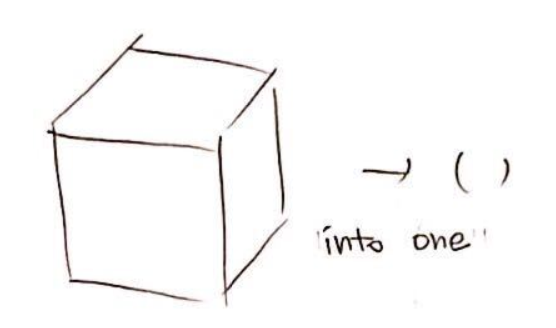 → ( )
"into one"